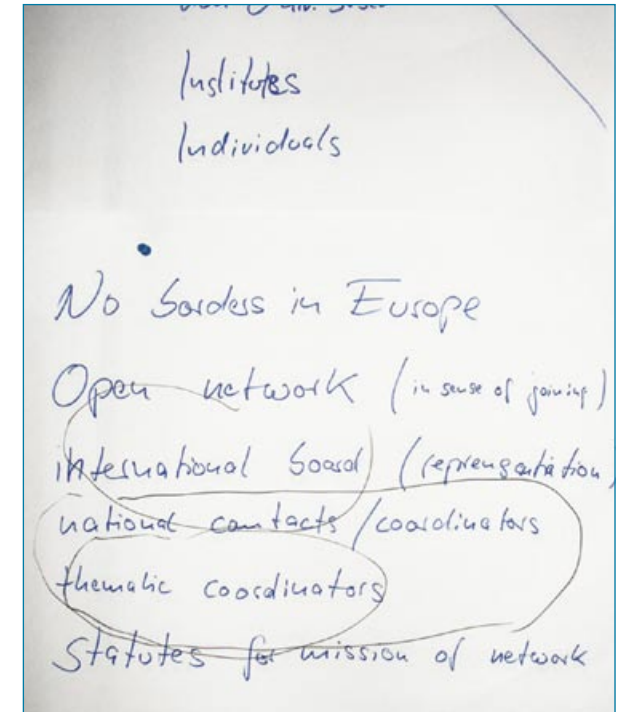 Institutes
Individuals
No borders in Europe
Open network (in sense of joining)
international board (
national contacts / coordinators
thematic coordinators
Statutes for mission of network